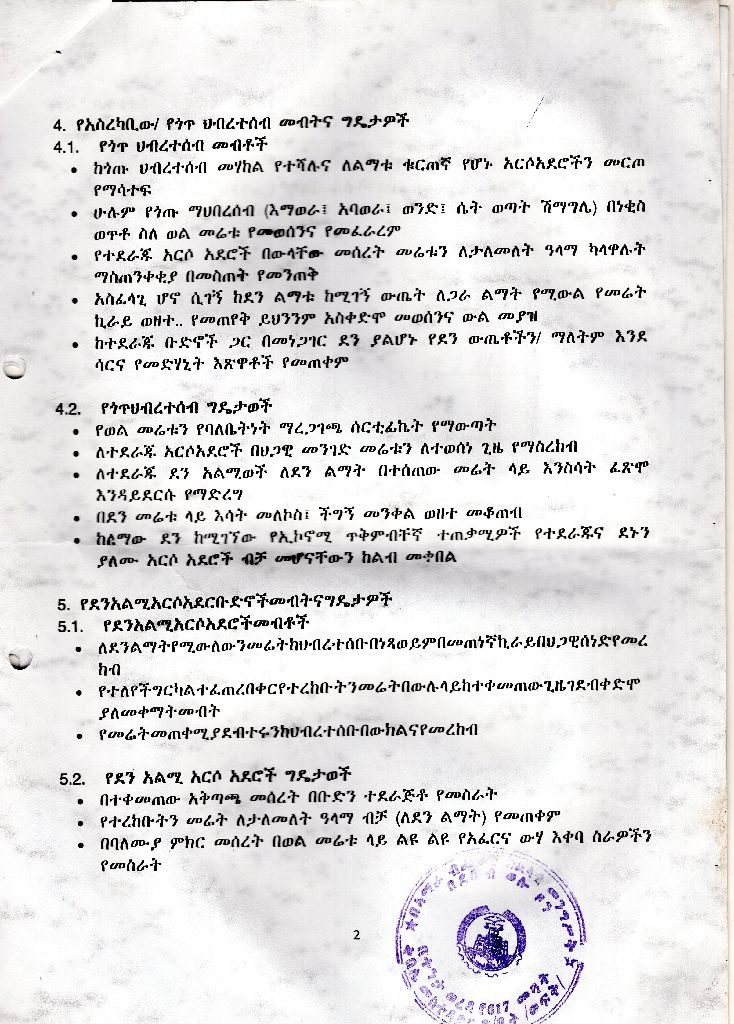 4. የአስረካቢው/ የጎጥ ህብረተሰብ መብትና ግዴታዎች
4.1. የጎጥ ህብረተሰብ መብቶች
• ከጎጡ ህብረተሰብ መሃከል የተሻሉና ለልማቱ ቁርጠኛ የሆኑ አርሶአደሮችን መርጦ
የማሳተፍ
• ሁሉም የጎጡ ማህበረሰብ (እማወራ፤ አባወራ፤ ወንድ፤ ሴት ወጣት ሽማግሌ) በነቂስ
ወጥቶ ስለ ወል መሬቱ የመወሰንና የመፈራረም
• የተደራጁ አርሶ አደሮች በውላቸው መሰረት መሬቱን ለታለመለት ዓላማ ካላዋሉት
ማስጠንቀቂያ በመስጠት የመንጠቅ
• አስፈላጊ ሆኖ ሲገኝ ከደን ልማቱ ከሚገኝ ውጤት ለጋራ ልማት የሚውል የመሬት
ኪራይ ወዘተ.. የመጠየቅ ይህንንም አስቀድሞ መወሰንና ውል መያዝ
• ከተደራጁ ቡድኖች ጋር በመነጋገር ደን ያልሆኑ የደን ውጤቶችን/ ማለትም እንደ
ሳርና የመድሃኒት እጽዋቶች የመጠቀም
4.2. የጎጥህብረተሰብ ግዴታወች
• የወል መሬቱን የባለቤትነት ማረጋገጫ ሰርቲፊኬት የማውጣት
• ለተደራጁ አርሶአደሮች በህጋዊ መንገድ መሬቱን ለተወሰነ ጊዜ የማስረከብ
• ለተደራጁ ደን አልሚወች ለደን ልማት በተሰጠው መሬት ላይ እንስሳት ፈጽሞ
እንዳይደርሱ የማድረግ
• በደን መሬቱ ላይ እሳት መለኮስ፤ ችግኝ መንቀል ወዘተ መቆጠብ
• ከልማው ደን ከሚገኘው የኢኮኖሚ ጥቅምብቸኛ ተጠቃሚዎች የተደራጁና ደኑን
ያለሙ አርሶ አደሮች ብቻ መሆናቸውን ከልብ መቀበል
5. የደንአልሚአርሶአደርቡድኖችመብትናግዴታዎች
5.1. የደንአልሚአርሶአደሮችመብቶች
• ለደንልማትየሚውለውንመሬትከህብረተሰቡበነጻወይምበመጠነኛኪራይበህጋዊሰነድየመረ
ከብ
• የተለየችግርካልተፈጠረበቀርየተረከቡትንመሬትበውሉላይከተቀመጠውጊዜገደብቀድሞ
ያለመቀማትመብት
• የመሬትመጠቀሚያደብተሩንከህብረተሰቡበውክልናየመረከብ
5.2. የደን አልሚ አርሶ አደሮች ግዴታወች
• በተቀመጠው አቅጣጫ መሰረት በቡድን ተደራጅቶ የመስራት
• የተረከቡትን መሬት ለታለመለት ዓላማ ብቻ (ለደን ልማት) የመጠቀም
• በባለሙያ ምክር መሰረት በወል መሬቱ ላይ ልዩ ልዩ የአፈርና ውሃ እቀባ ስራዎችን
የመስራት
2